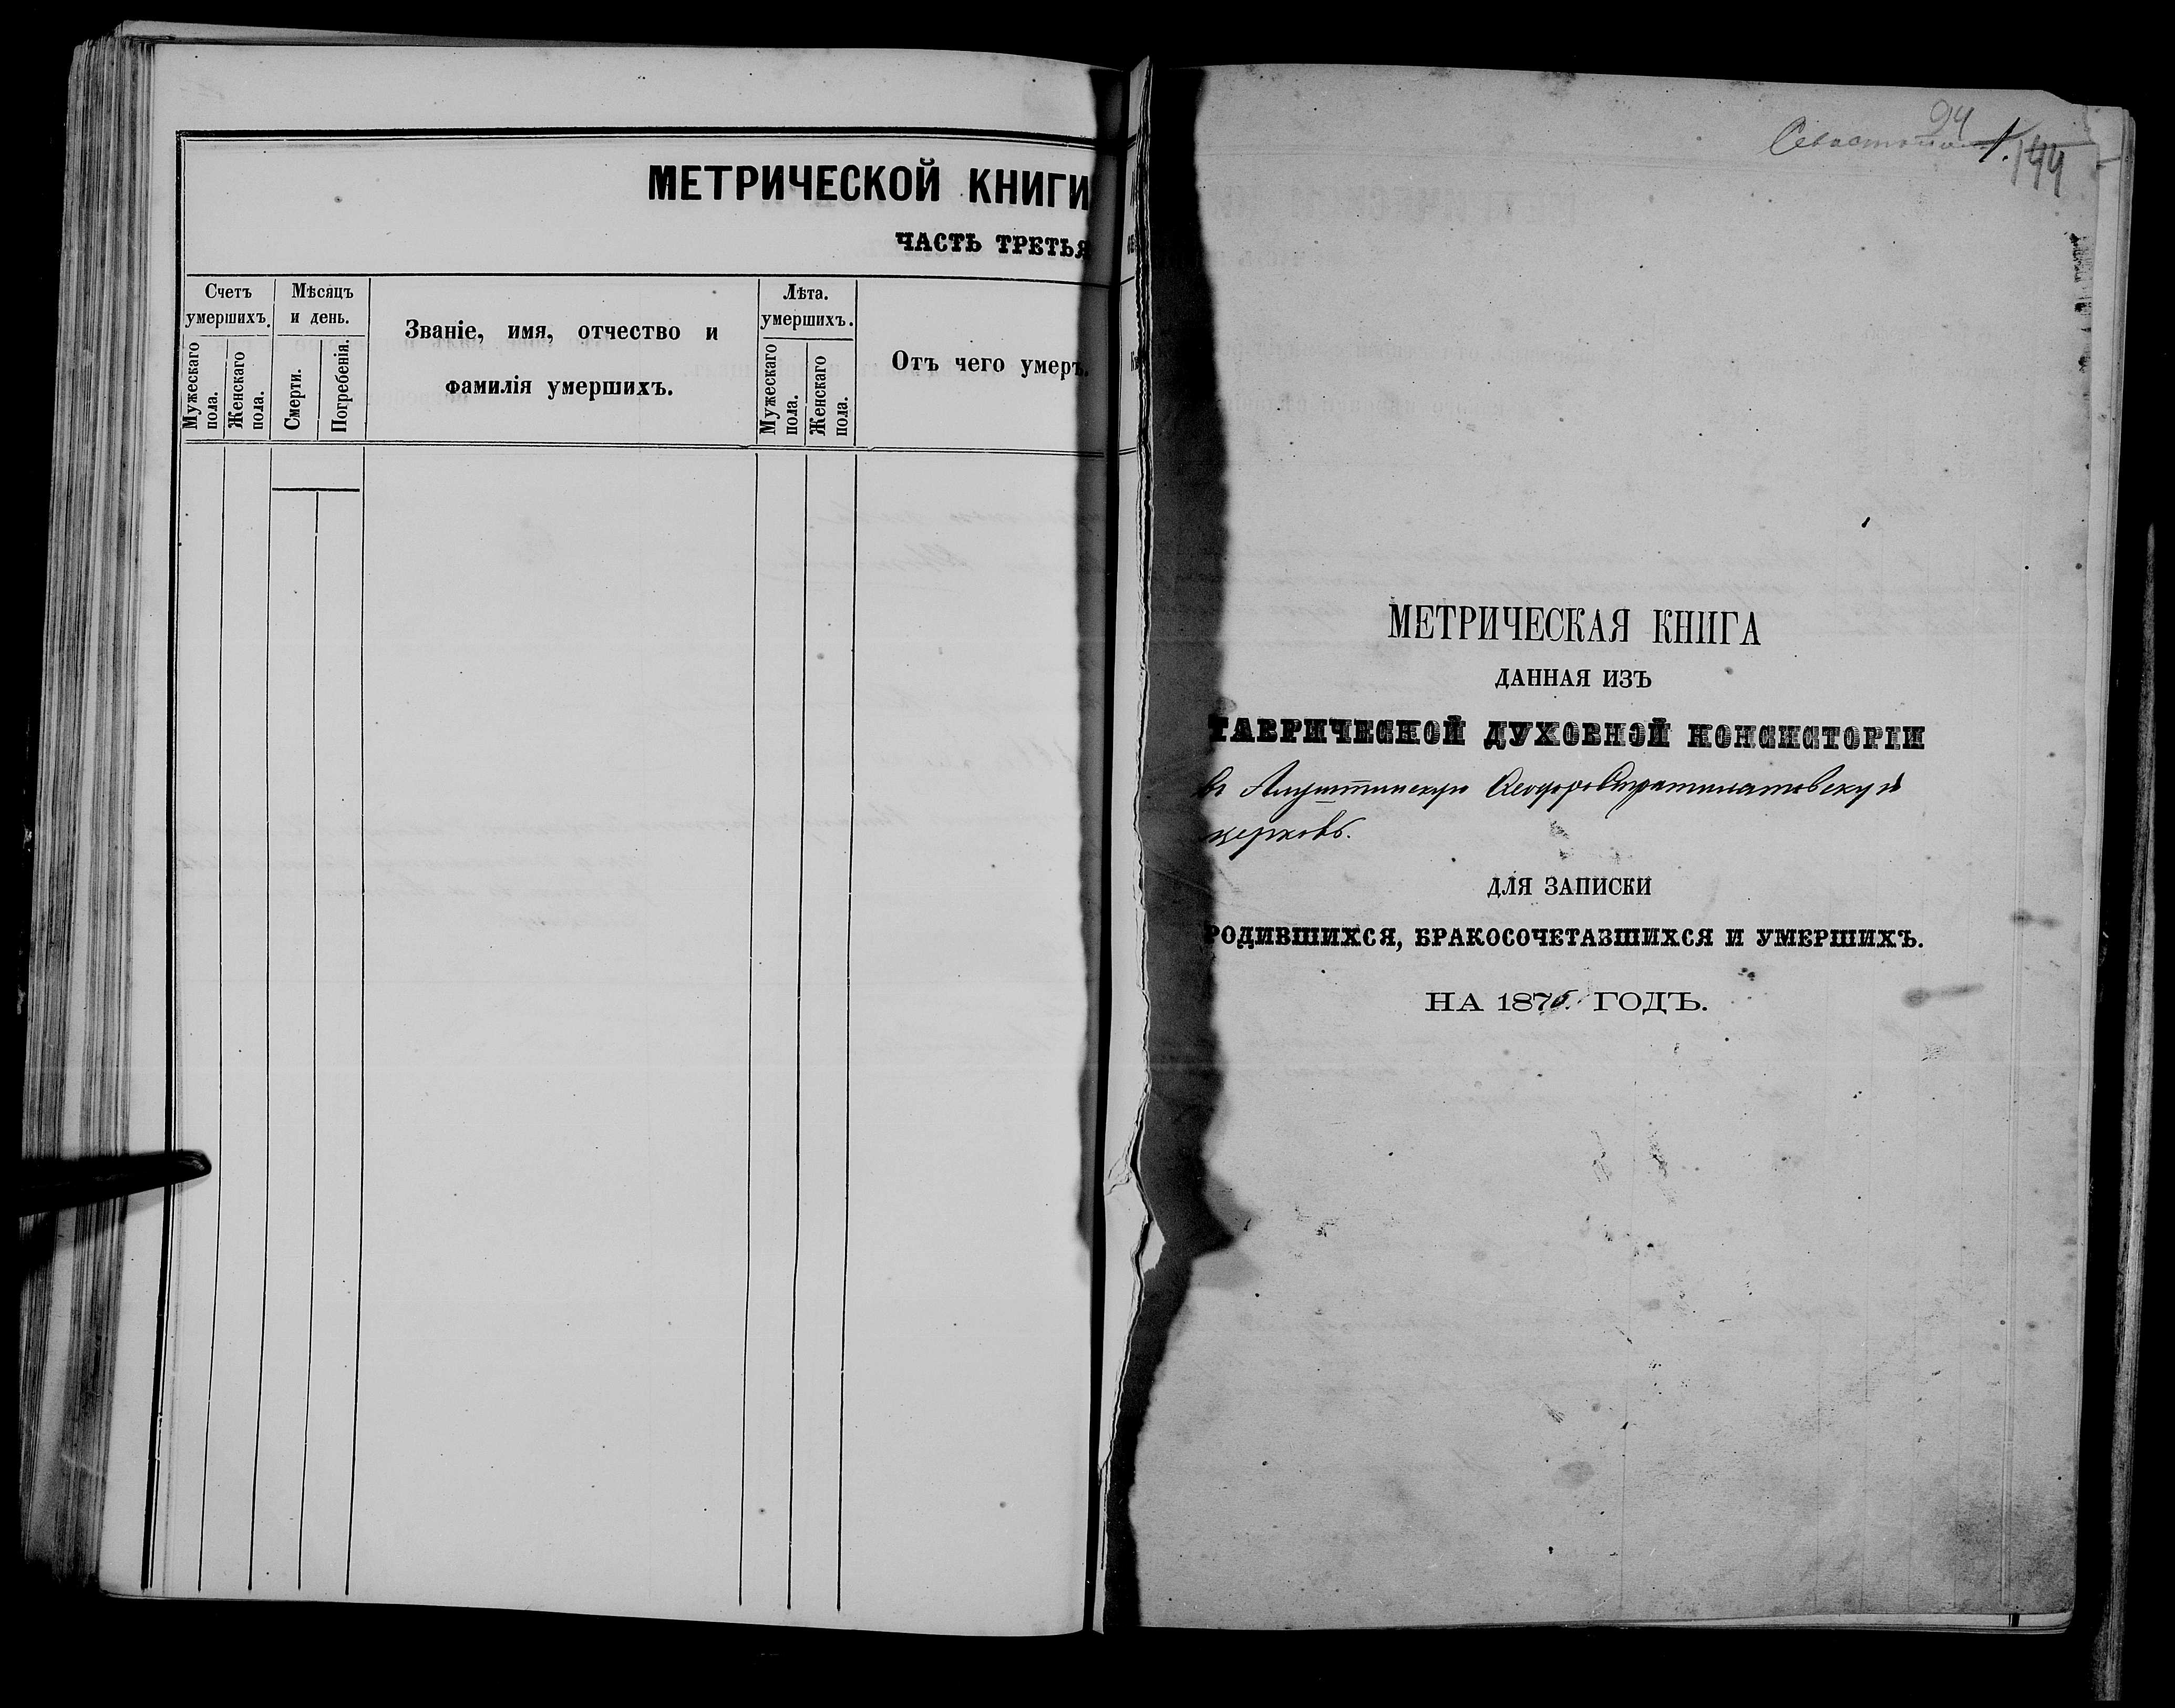 МЕТРИЧЕСКОЙ КНИГИ
ЧАСТЬ ТРЕТЬЯ
Счетъ умершихъ.
Мужескаго пола.
Женскаго пола.
Мѣсяцъ и день.
Смерти.
Погребенія.
Званіе, имя, отчество и
фамилія умершихъ.
Лѣта. умершихъ.
Мужескаго пола.
Женскаго пола.
Отъ чего умеръ.
94
Севастополь 1.
144
МЕТРИЧЕСКАЯ КНИГА
ДАННАЯ ИЗЪ
ТАВРИЧЕСКОЙ ДУХОВНОЙ КОНСИСТОРІИ
въ Алуштинскую Ѳеодоро Стратилатовскую
церковь.
ДЛЯ ЗАПИСКИ
РОДИВШИХСЯ, БРАКОСОЧЕТАВШИХСЯ И УМЕРШИХЪ.
НА 1875. ГОДЪ.